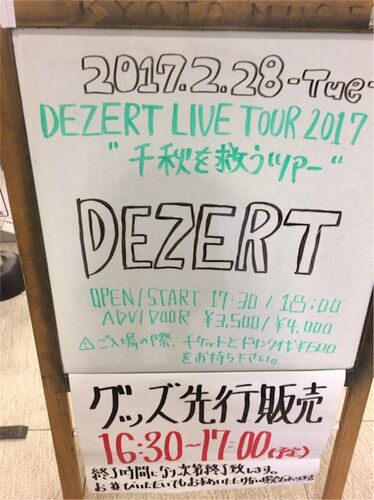 KYOTO MUSE
2017.2.28-Tue-
DEZERT LIVE TOUR 2017
"千秋を救うツアー"
DEZERT
OPEN/START 17:30/18:00
ADV/DOOR ¥3,500/¥4,000
⚠ご入場の際、チケットとドリンク代¥600
をお持ち下さい。
グッズ先行販売
16:30~17:00(予定)
終了時間になり次第終了致します。
お並びいただいても